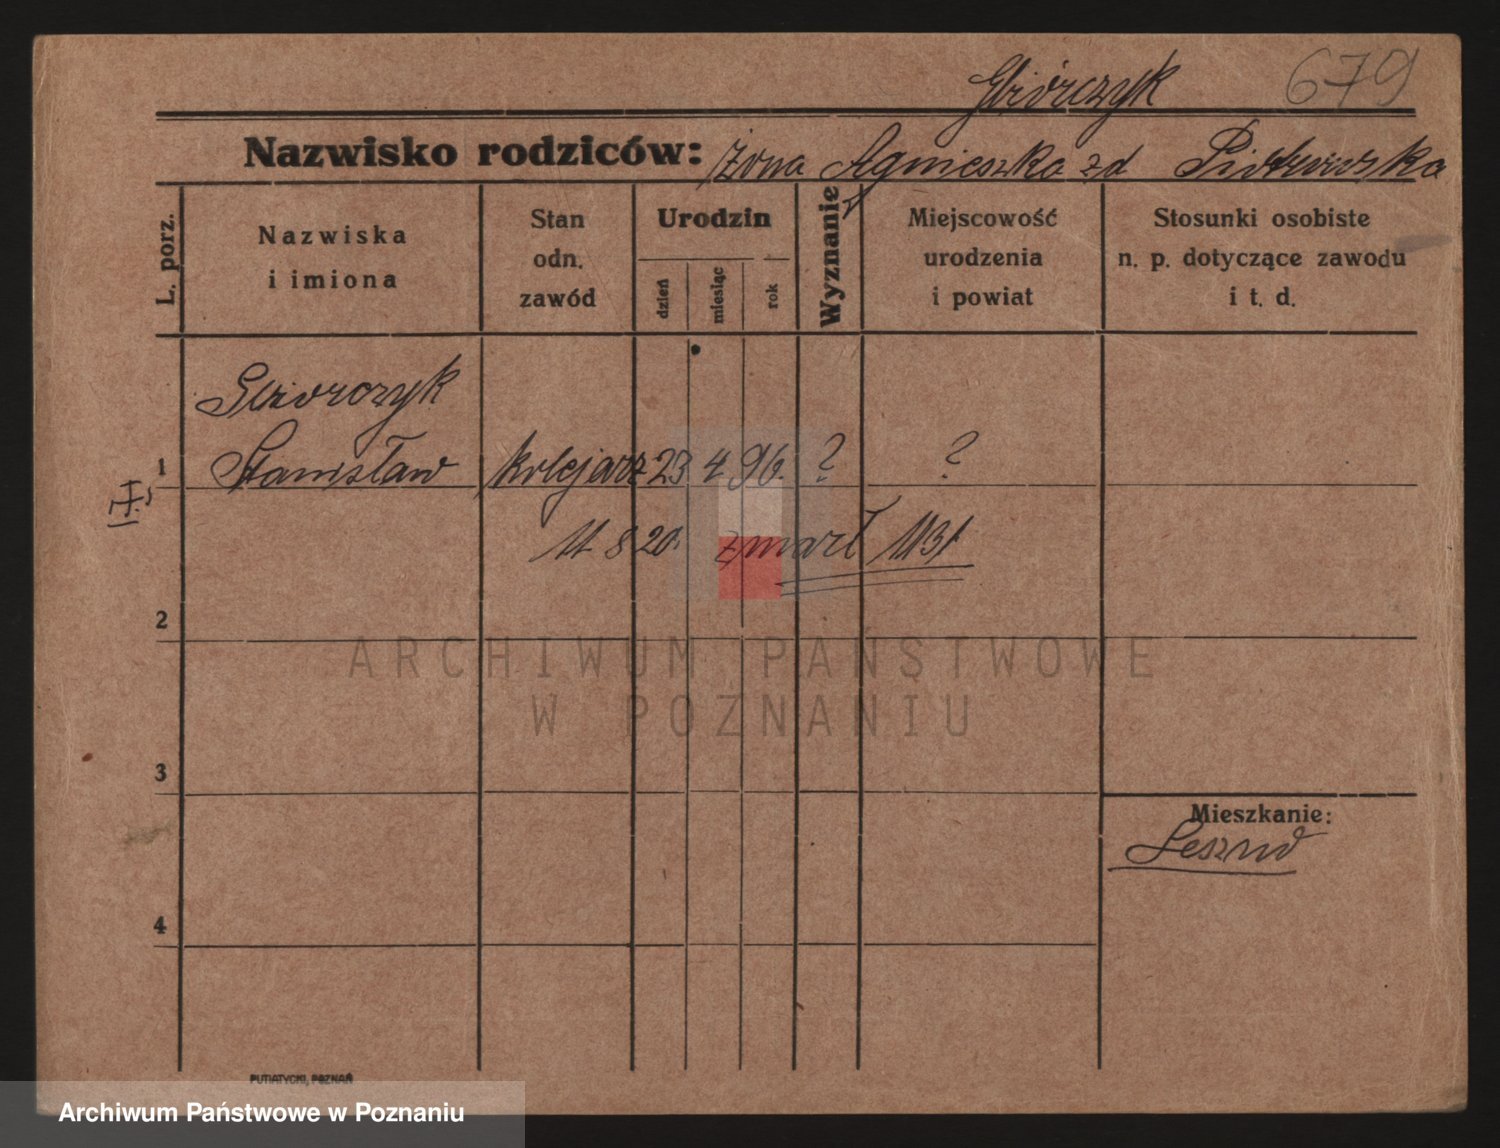 679
Nazwisko rodziców: żona Agnieszka zd
L. porz.
Nazwiska
i imiona
Stan
odn.
zawód
Urodzin
dzień
miesiąc
rok
Wyznanie
Miejscowość
urodzenia
i powiat
Stosunki osobiste
n. p. dotyczące zawodu
i t. d.
1
Stanisław kolejarz 23 4 96. ? ?
11 8 20. zmarł
2
ARCHIWUM PAŃSTWOWE
W POZNANIU
3
Mieszkanie:
Leszno
4
PUTIATYCKI, POZNAŃ
Archiwum Państwowe w Poznaniu